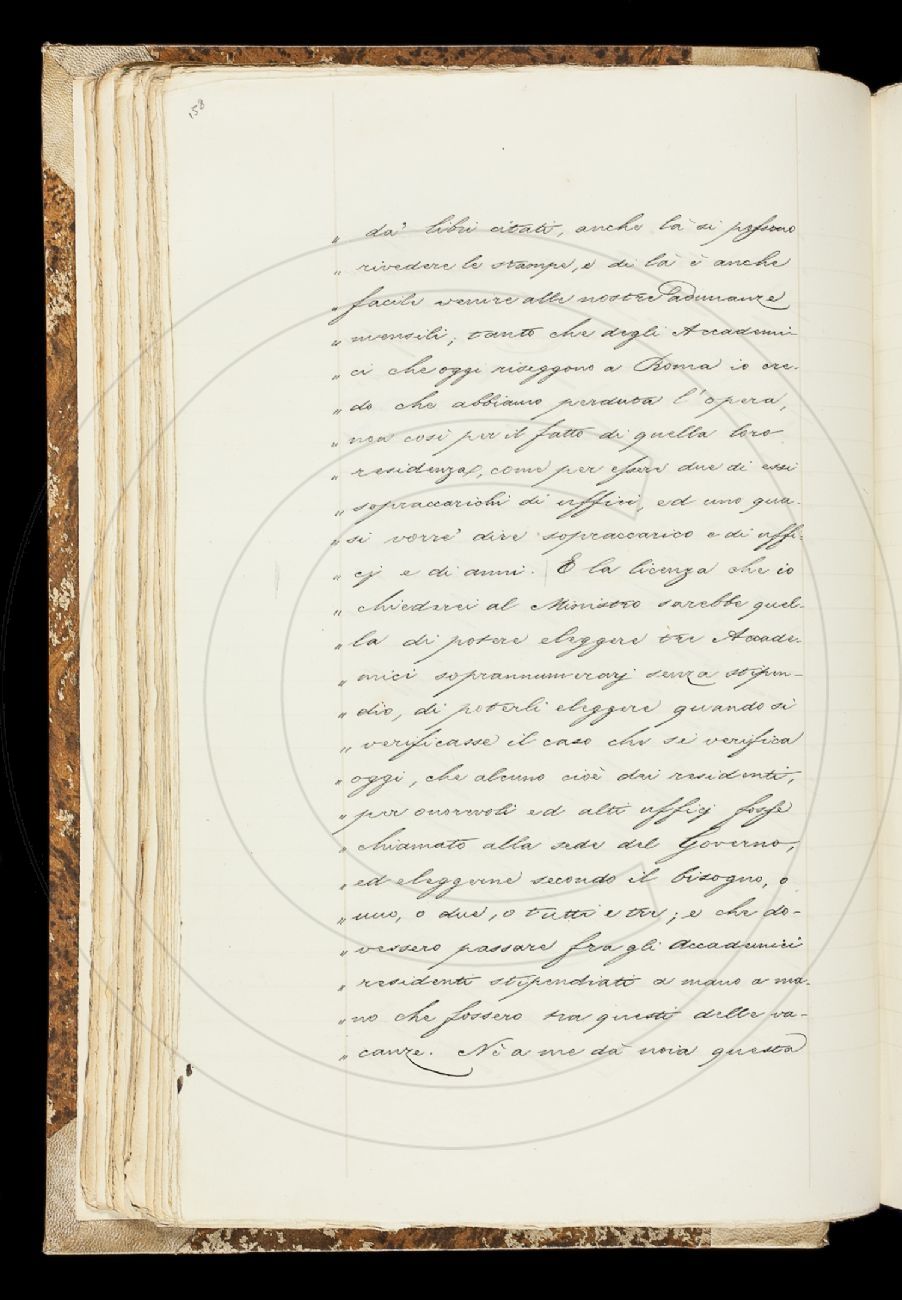 158
„ da' libri citati, anche là si possono
„ rivedere le stampe, e di là è anche
„ facile venire alle nostre adunanze
„ mensili; tanto che degli Accademi-
„ ci che oggi riseggono a Roma io cre-
„ do che abbiamo perduta l'opera,
„ non così per il fatto di quella loro
„ residenza, come per essere due di essi
„ sopraccarichi di uffici, ed uno qua-
„ si vorrei dire sopraccarico e di uffi-
„ cj e di anni. E la licenza che io
„ chiederei al Ministro sarebbe quel-
„ la di potere eleggere tre Accade-
„ mici soprannumerarj senza stipen-
„ dio, di poterli eleggere quando si
„ verificasse il caso che si verifica
„ oggi, che alcuno cioè dei residenti,
„ per onorevoli ed alti ufficj fosse
„ chiamato alla sede del Governo,
„ ed eleggerne secondo il bisogno, o
„ uno, o due, o tutti e tre; e che do-
„ vessero passare fra gli Accademici
„ residenti stipendiati a mano a ma-
„ no che fossero tra questi delle va-
„ canze. Nè a me dà noia questa